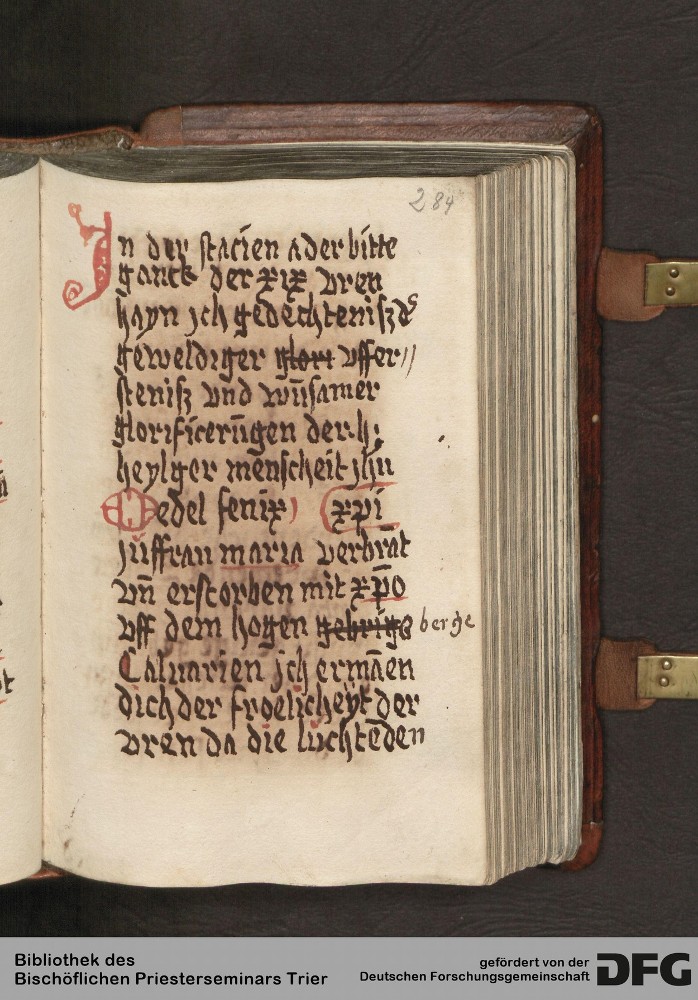 284
In der stacien ader bitte
ganck der xix vren
hayn jch gedechtenisz ds
geweldiger glori vffer//
stenisz vnd wūsamer
glorificerūgen der h.
heylger mēnscheit jhū
O edel fenix) (xpi
juffrau maria verbrāt
vn̄ erstorben mit xp̄o
vff dem hogen gebrige berge
Caluarien jch ermāen
dich der froelicheyt der
vren da die luchteden
Bibliothek des
Bischöflichen Priesterseminars Trier
gefördert von der
Deutschen Forschungsgemeinschaft DFG